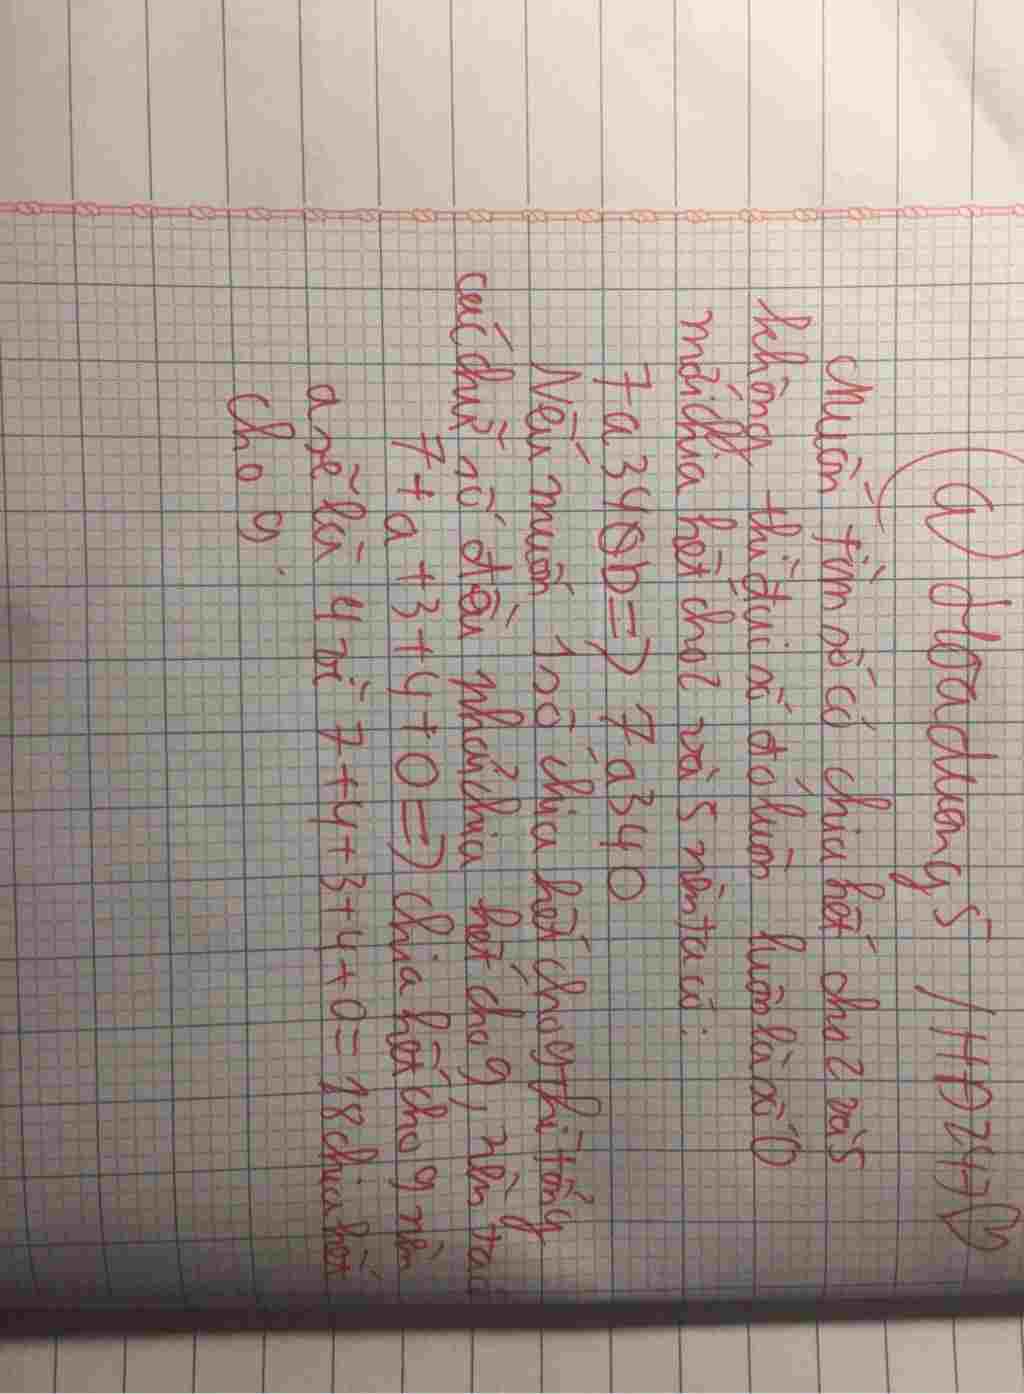 @ Hoaduong5 / HĐZ4A
Muốn tìm số có chia hết cho 2 và 5
không thì đuôi số đó luôn luôn là số 0
mới chia hết cho 2 và 5 nên ta có:
7a340b=> 7a340
Nếu muốn 1 số chia hết cho 9 thì tổng
các chữ số đến phải chia hết cho 9, nên ta có
7+a+3+4+0=> chia hết cho 9 nên
a sẽ là 4 vì 7+4+3+4+0=18 chia hết
cho 9.